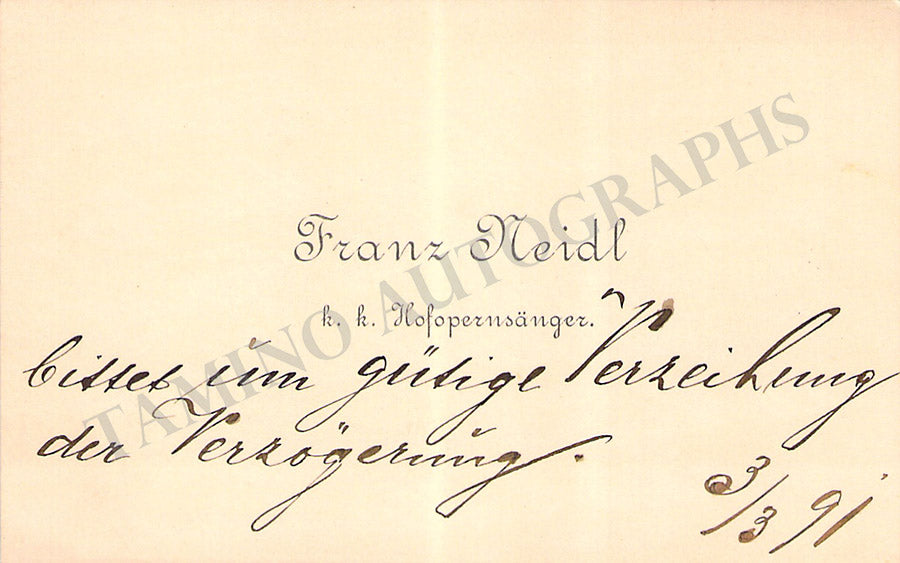 Franz Neidl
k. k. Hofopernsänger.
bittet um gütige Verzeihung
der Verzögerung.
3/3 91
TAMINO AUTOGRAPHS